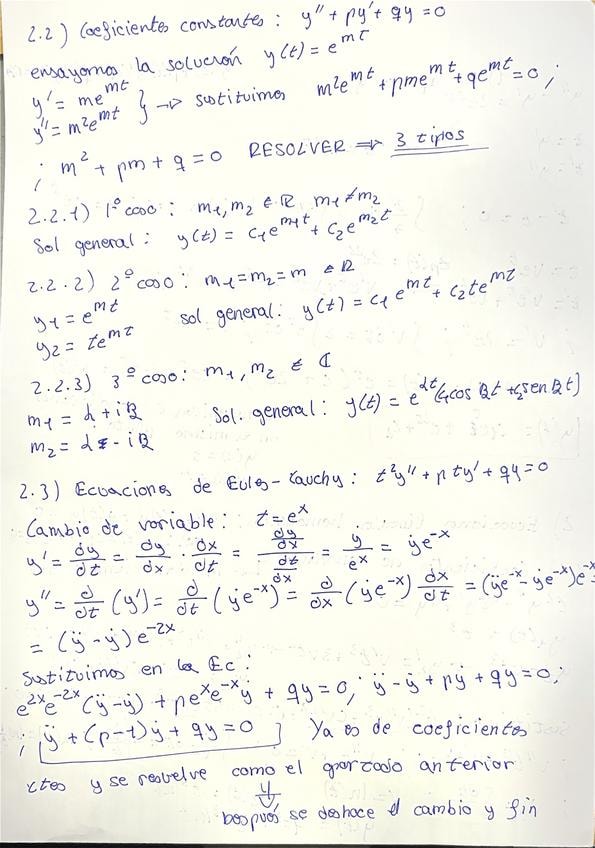 2.2) Coeficientes constantes: y'' + py' + qy = 0
ensayamos la solución y(t) = e^{mt}
y' = me^{mt}
y'' = m²e^{mt} } → sustituimos m²e^{mt} + pme^{mt} + qe^{mt} = 0 ;
; m² + pm + q = 0 RESOLVER ⇒ 3 tipos
2.2.1) 1º caso: m₁, m₂ ∈ ℝ m₁ ≠ m₂
Sol general: y(t) = c₁e^{m₁t} + c₂e^{m₂t}
2.2.2) 2º caso: m₁ = m₂ = m ∈ ℝ
y₁ = e^{mt}
y₂ = te^{mt} sol general: y(t) = c₁e^{mt} + c₂te^{mt}
2.2.3) 3º caso: m₁, m₂ ∈ ℂ
m₁ = α + iβ Sol. general: y(t) = e^{αt}(c₁cos βt + c₂sen βt)
m₂ = α - iβ
2.3) Ecuaciones de Euler-Cauchy: t²y'' + pty' + qy = 0
Cambio de variable: t = e^x
y' = dy/dt = dy/dx · dx/dt = (dy/dx)/(dt/dx) = ẏ/e^x = ẏe^{-x}
y'' = d/dt (y') = d/dt (ẏe^{-x}) = d/dx (ẏe^{-x}) dx/dt = (ÿe^{-x} - ẏe^{-x})e^{-x}
= (ÿ - ẏ)e^{-2x}
Sustituimos en la Ec:
e^{2x}e^{-2x}(ÿ - ẏ) + pe^xe^{-x}ẏ + qy = 0 ; ÿ - ẏ + pẏ + qy = 0 ;
; ÿ + (p-1)ẏ + qy = 0 Ya es de coeficientes
ctes y se resuelve como el apartado anterior
después se deshace el cambio y fin